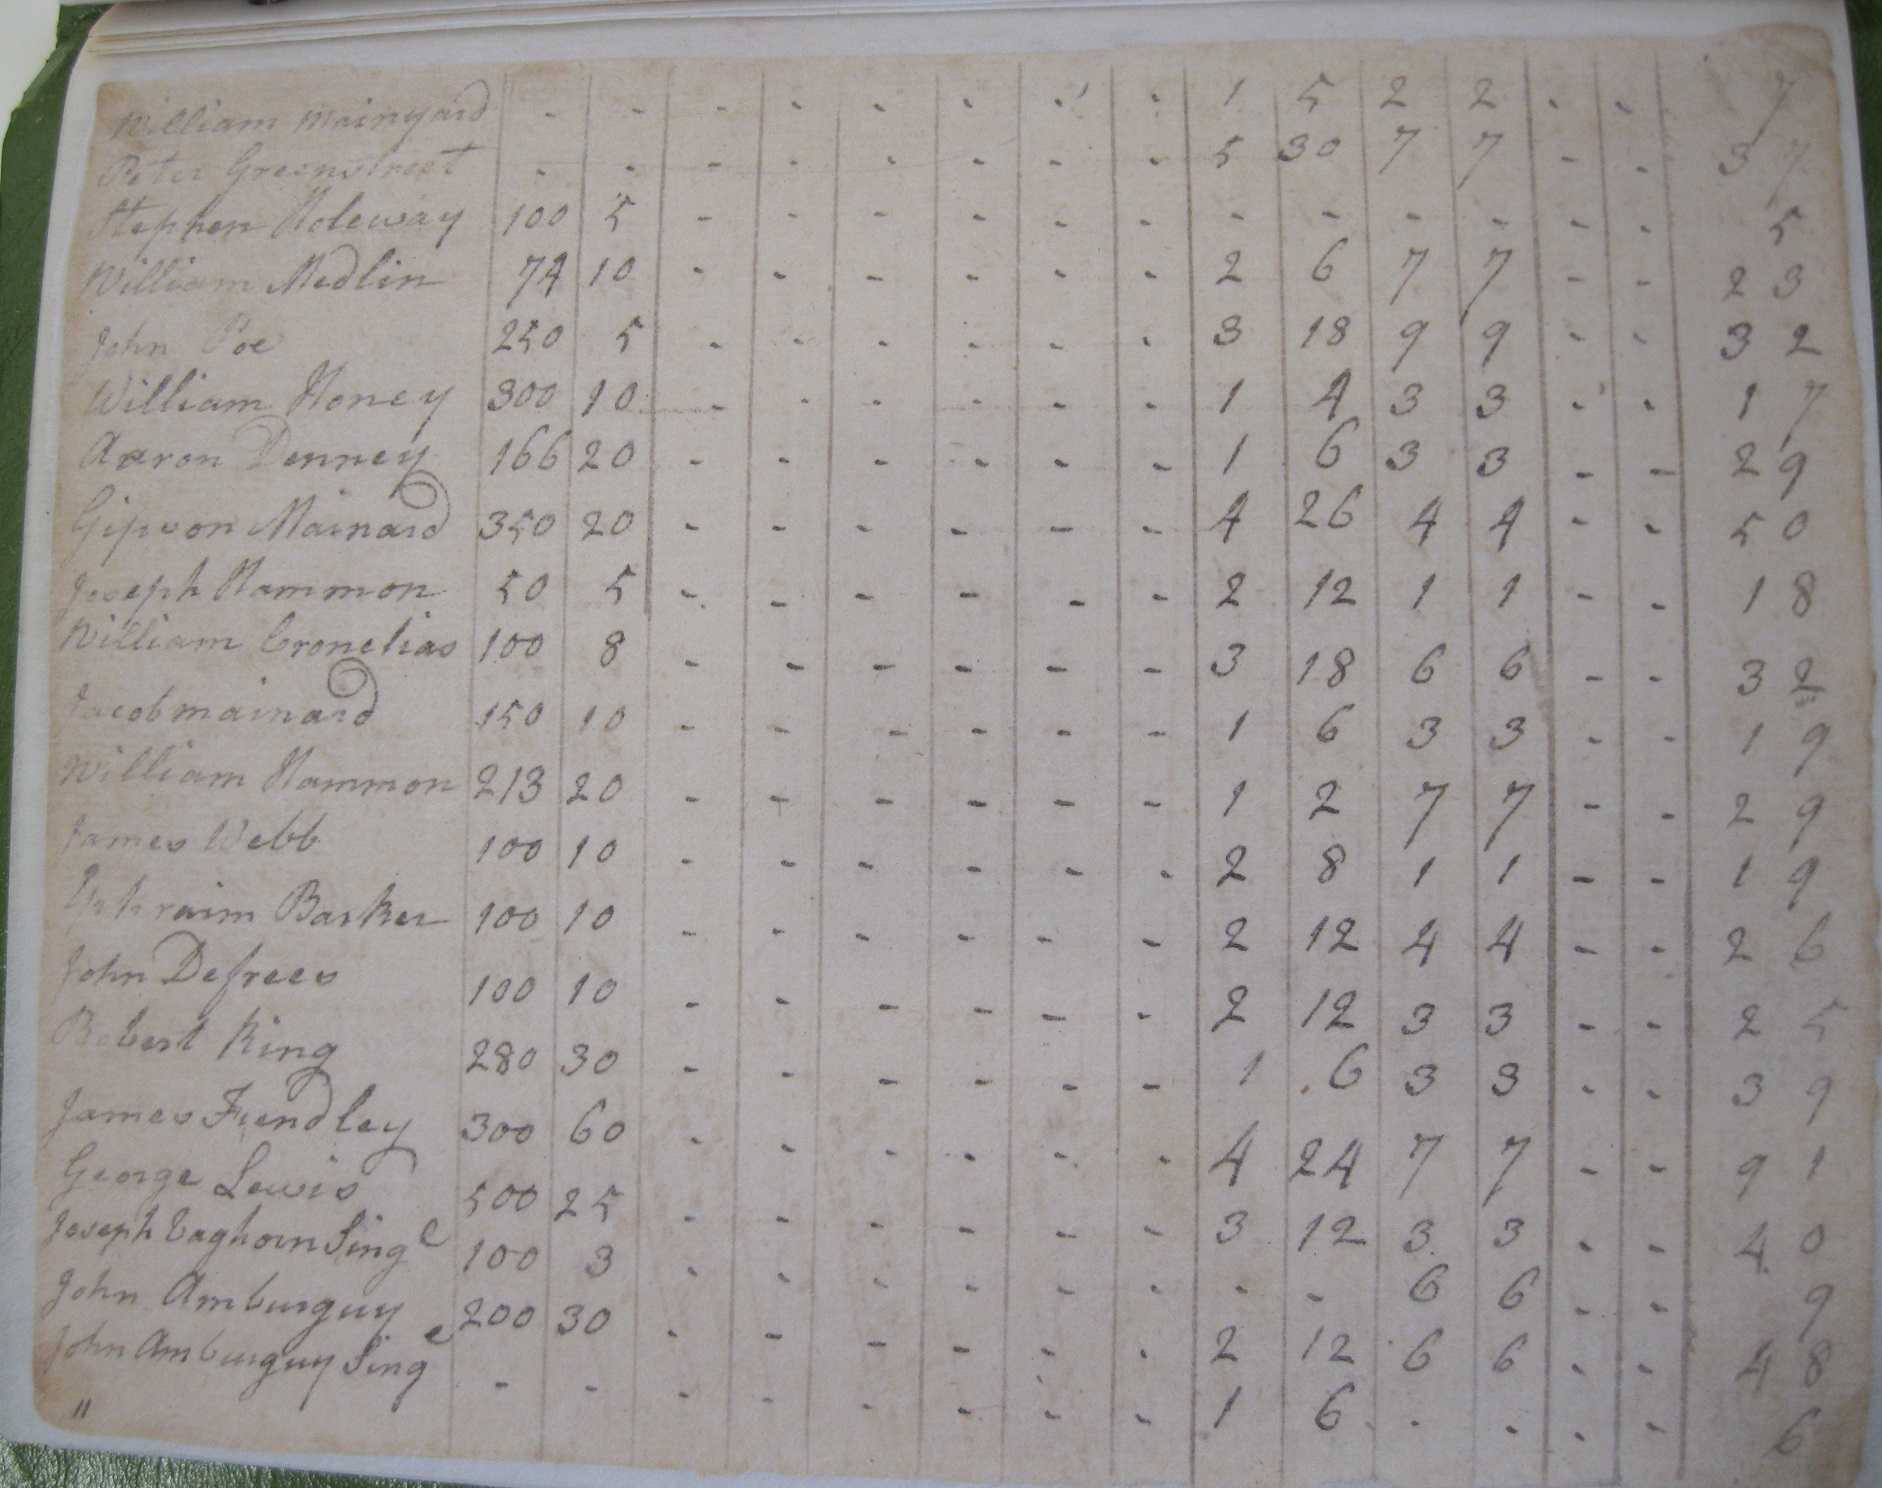 William Mainyard - - - - - - - - 1 5 2 2 - - 7
Peter Greenstreet - - - - - - - - 5 30 7 7 - - 37
Stephen Holeway 100 5 - - - - - - - - - - - - 5
William Medlin 74 10 - - - - - - 2 6 7 7 - - 23
John Poe 250 5 - - - - - - 3 18 9 9 - - 32
William Honey 300 10 - - - - - - 1 4 3 3 - - 17
Aaron Denney 166 20 - - - - - - 1 6 3 3 - - 29
Gipson Mainard 350 20 - - - - - - 4 26 4 4 - - 50
Joseph Hammon 50 5 - - - - - - 2 12 1 1 - - 18
William Cronelias 100 8 - - - - - - 3 18 6 6 - - 32
Jacob mainard 150 10 - - - - - - 1 6 3 3 - - 19
William Hammon 213 20 - - - - - - 1 2 7 7 - - 29
James Webb 100 10 - - - - - - 2 8 1 1 - - 19
Ephraim Barker 100 10 - - - - - - 2 12 4 4 - - 26
John Defrees 100 10 - - - - - - 2 12 3 3 - - 25
Robert King 280 30 - - - - - - 1 6 3 3 - - 39
James Fendley 300 60 - - - - - - 4 24 7 7 - - 91
George Lewis 500 25 - - - - - - 3 12 3 3 - - 40
Joseph Eaghorn Singe 100 3 - - - - - - - - 6 6 - - 9
John Amburguy 200 30 - - - - - - 2 12 6 6 - - 48
John Amburguy Singe - - - - - - - - 1 6 - - - - 6
11